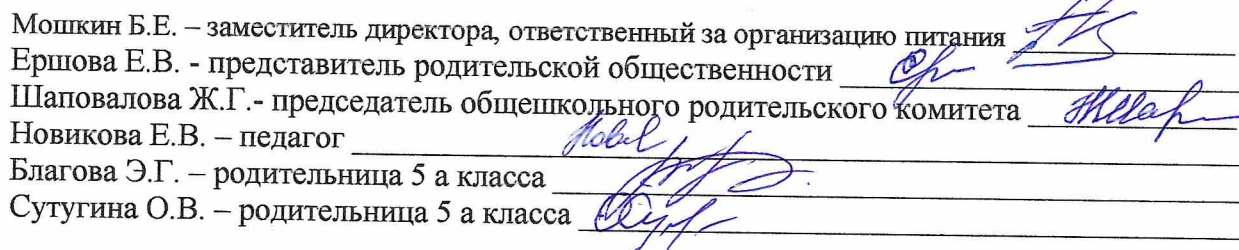 Мошкин Б.Е. – заместитель директора, ответственный за организацию питания
Ершова Е.В. - представитель родительской общественности
Шаповалова Ж.Г.- председатель общешкольного родительского комитета
Новикова Е.В. – педагог
Благова Э.Г. – родительница 5 а класса
Сутугина О.В. – родительница 5 а класса